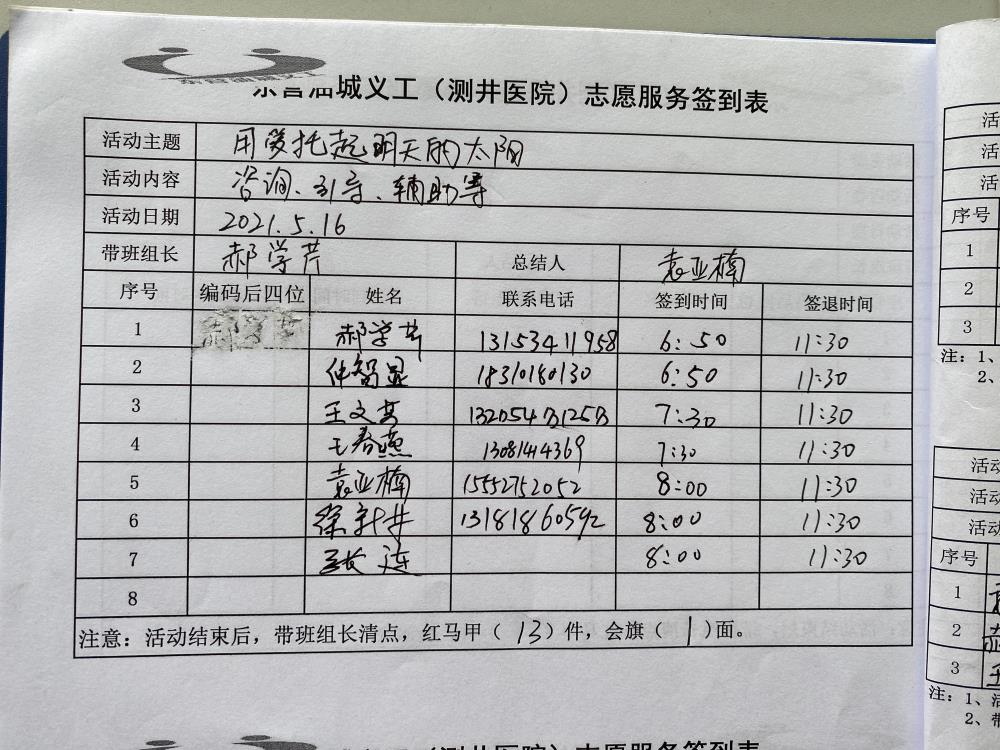 东营油城义工（测井医院）志愿服务签到表
活动主题 用爱托起明天的太阳
活动内容 咨询、引导、辅助等
活动日期 2021.5.16
带班组长 郝学芹 总结人 袁亚楠
序号 编码后四位 姓名 联系电话 签到时间 签退时间
1 郝学芹 13153411958 6:50 11:30
2 仲智显 18310180130 6:50 11:30
3 王文 7:30 11:30
4 王春燕 13081414369 7:30 11:30
5 袁亚楠 15552752052 8:00 11:30
6 徐 13181860592 8:00 11:30
7 张 连 8:00 11:30
8
注意：活动结束后，带班组长清点，红马甲（13）件，会旗（1）面。
（测井医院）志愿服务签到表
活
活
活
序号
1
2
3
注：1、
2、
活动
活动
活动
序号
1
2
3
注：1、活
2、带